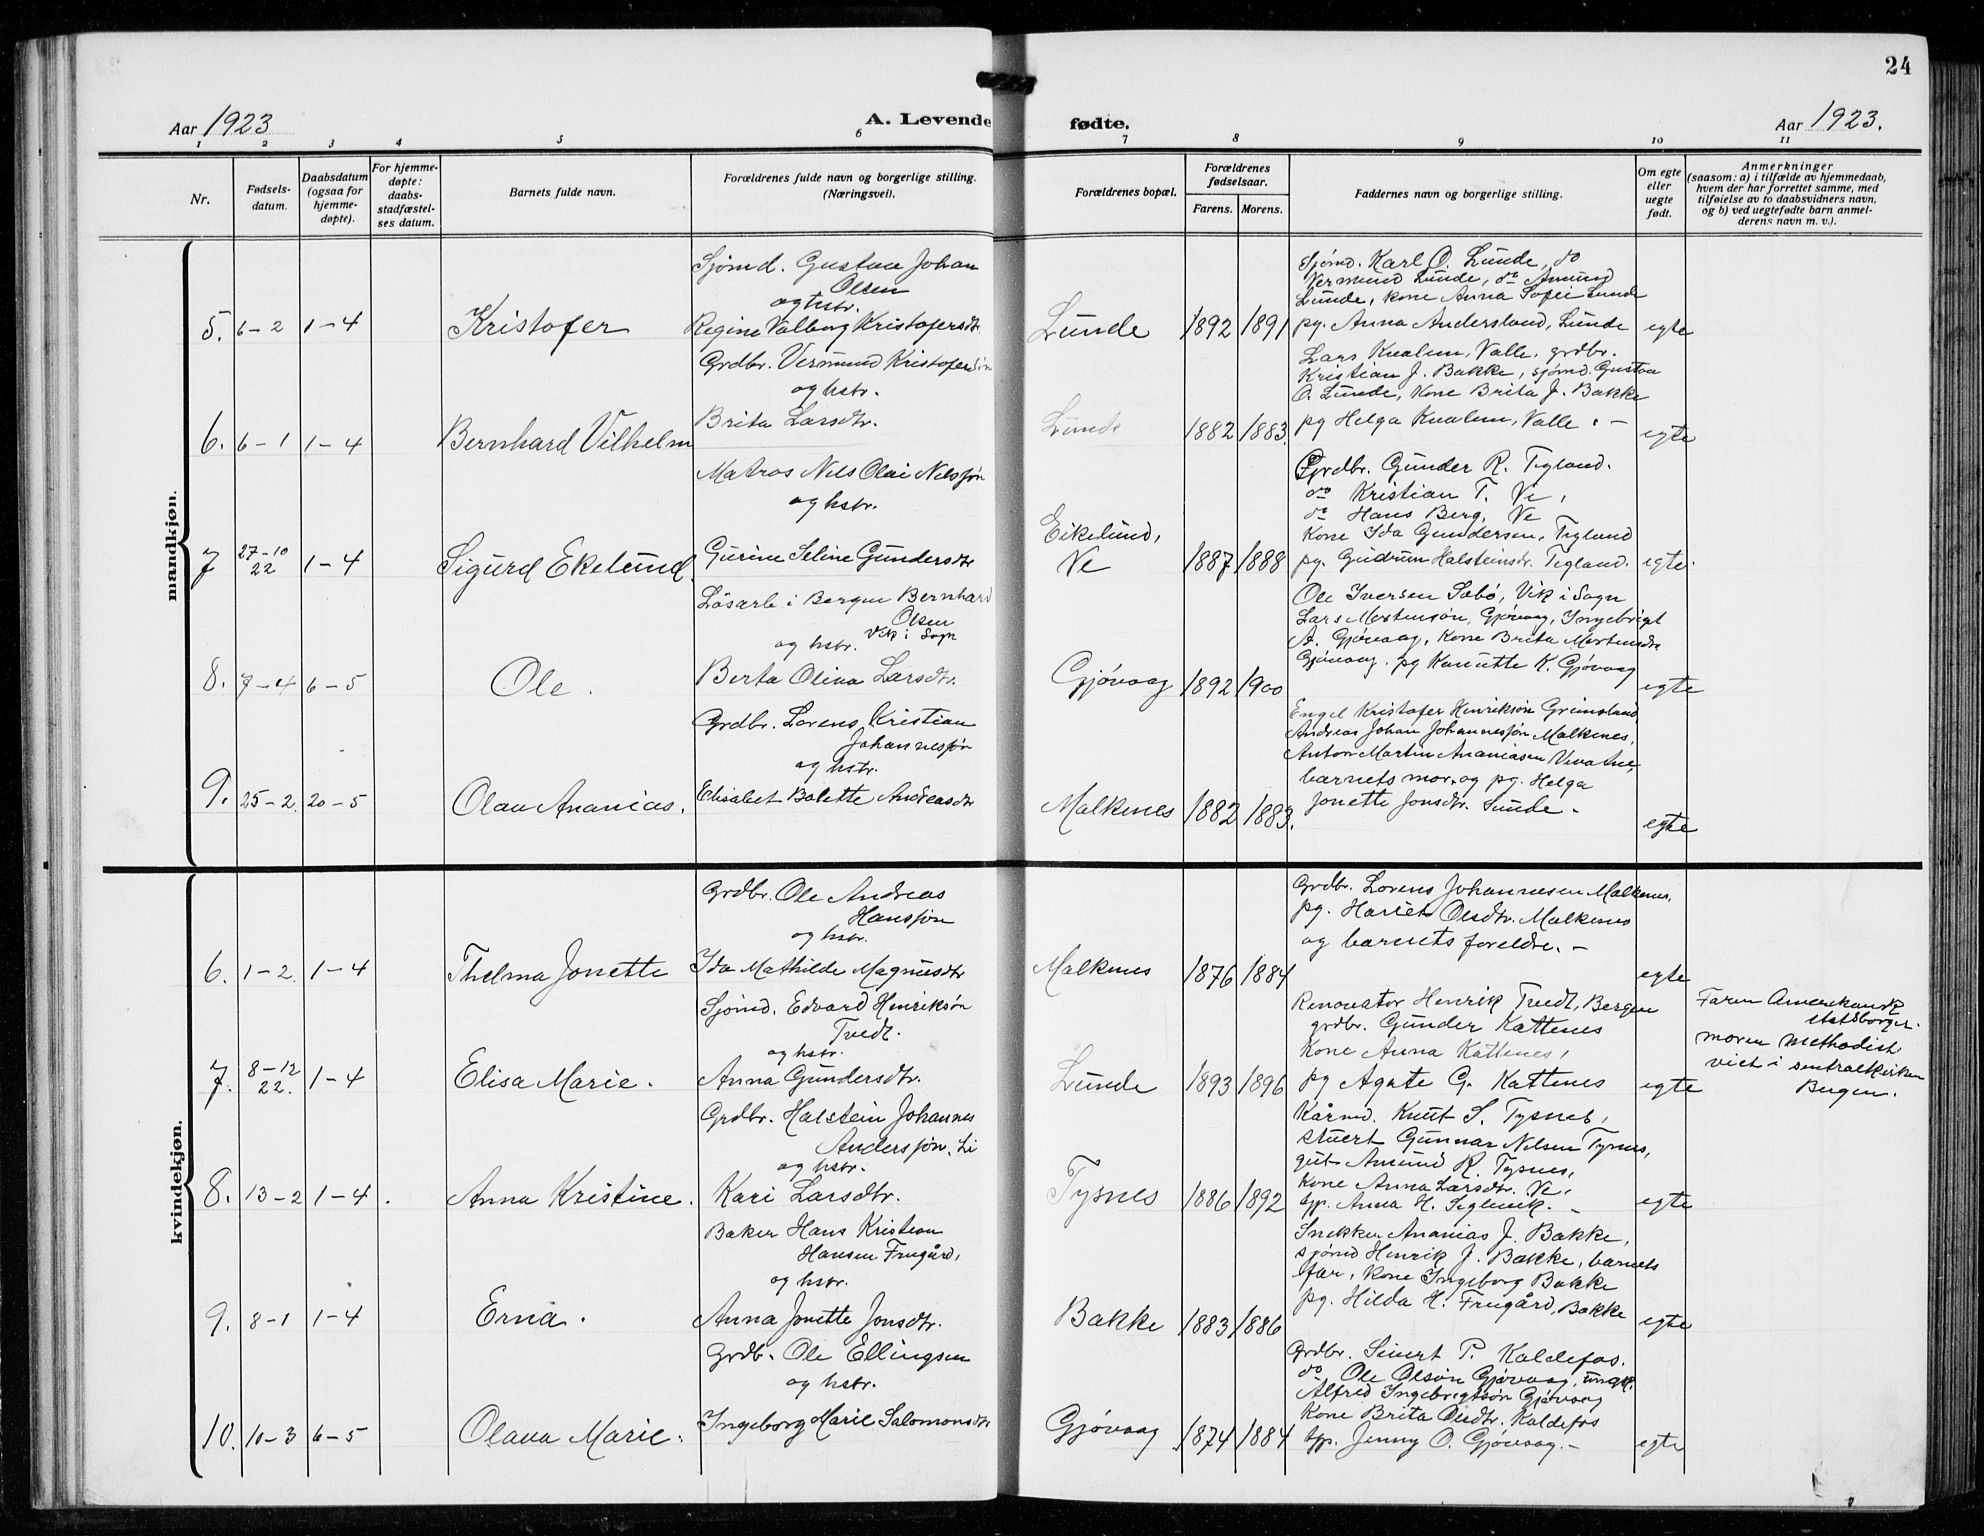 24
Aar 1923
A. Levende fødte.
Aar 1923.
1 2 3 4 5 6 7 8 9 10 11
Nr.
Fødsels-
datum.
Daabsdatum
(ogsaa for
hjemme-
døpte).
For hjemme-
døpte:
daabs-
stadfæstel-
ses datum.
Barnets fulde navn.
Forældrenes fulde navn og borgerlige stilling.
(Næringsvei).
Forældrenes bopæl.
Forældrenes
fødselsaar.
Farens. Morens.
Faddernes navn og borgerlige stilling.
Om egte
eller
uegte
født.
Anmerkninger
(saasom: a) i tilfælde av hjemmedaab,
hvem der har forrettet samme, med
tilføielse av to daabsvidners navn,
og b) ved uegtefødte barn anmel-
derens navn m. v.).
mandkjøn.
5. 6-2 1-4 Kristofer
Sjömd. Gustav Johan
Olsen
og hstr.
Regine Valborg Kristofersdtr.
Lunde 1892 1891
Sjömd. Karl O. Lunde, do
Vermund Lunde, do Amund
Lunde, kone Anna Sofei Lunde
pg. Anna Andersland, Lunde
egte
6. 6-1 1-4 Bernhard Vilhelm
Grdbr. Vermund Kristofersön
og hstr.
Brita Larsdtr.
Lunde 1882 1883.
Lars Kvalem, Valle, grdbr.
Kristian J. Bakke, sjömd. Gustav
O. Lunde, kone Brita J. Bakke
pg Helga Kvalem, Valle. -
egte
7 27-10 22 1-4 Sigurd Ekelund
Matros Nils Olai Nilssön
og hstr.
Gurine Seline Gundersdtr
Eikelund,
Ve 1887 1888
Grdbr. Gunder R. Tegland.
do Kristian T. Ve,
do Hans Berg, Ve
Kone Ida Gundersen, Tegland
pg. Gudrun Halsteinsdr. Tegland.
egte.
8. 7-4 6-5 Ole.
Lösarb i Bergen Bernhard
Olsen
Vik i Sogn
og hstr.
Berta Olina Larsdtr.
Gjövaag 1892 1900
Ole Iversen Säbö, Vik i Sogn
Lars Mortensön, Gjövaag, Ingebrigt
A. Gjövaag, kone Brita Mortensdtr
Gjövaag. pg Kanutte K. Gjövaag
egte
9. 25-2. 20-5 Olav Ananias.
Grdbr. Lorens Kristian
Johannessön
og hstr.
Elisabet Bolette Andreasdtr
Malkenes 1882 1883.
Engel Kristofer Henriksön Grimsland,
Andreas Johan Johannessön Malkenes,
Anton Martin Ananiasen
barnets mor. og pg. Helga
Jonette Jonsdtr. Lunde -
egte
kvindekjøn.
6. 1-2. 1-4 Thelma Jonette
Grdbr. Ole Andreas
Hanssön
og hstr.
Ida Mathilde Magnusdtr
Malkenes 1876 1884
Grdbr. Lorens Johannesen Malkenes,
pg. Hariet Olsdtr. Malkenes
og barnets foreldre. -
egte
7. 8-12 22. 1-4 Elisa Marie.
Sjömd. Edvard Henriksön
Tvedt.
og hstr.
Anna Gundersdtr.
Lunde 1893 1896
Renovatör Henrik Tvedt, Bergen
grdbr. Gunder Kattenes
Kone Anna Kattenes,
pg Agate G. Kattenes
egte
Faren Amerikansk
statsborger.
moren methodist
viet i sentralkirken
Bergen.
8. 13-2 1-4. Anna Kristine.
Grdbr. Halstein Johannes
Anderssön. Li
og hstr.
Kari Larsdtr.
Tysnes 1886 1892
Kårmd. Knut S. Tysnes,
stuert Gunnar Nilsen Tysnes,
gut Amund R. Tysnes,
kone Anna Larsdtr. Ve,
Anna H. -
egte
9. 8-1 1-4 Erna.
Baker Hans Kristian
Hansen Frugård,
og hstr.
Anna Jonette Jonsdtr.
Bakke 1883 1886
Snekker Ananias J. Bakke,
sjömd Henrik J. Bakke, barnets
far, kone Ingeborg Bakke
pg. Hilda H. Frugård, Bakke
egte
10. 10-3 6-5 Olava Marie.
Grdb. Ole Ellingsen
og hstr.
Ingeborg Marie Salomonsdtr
Gjövaag 1874 1884
Grdbr. Sivert P. Kaldefos.
do Ole Olsön Gjövaag, ungk.
Alfred Ingebrigtsön Gjövaag
Kone Brita Olsdtr. Kaldefos
Jenny O. Gjövaag. -
egte